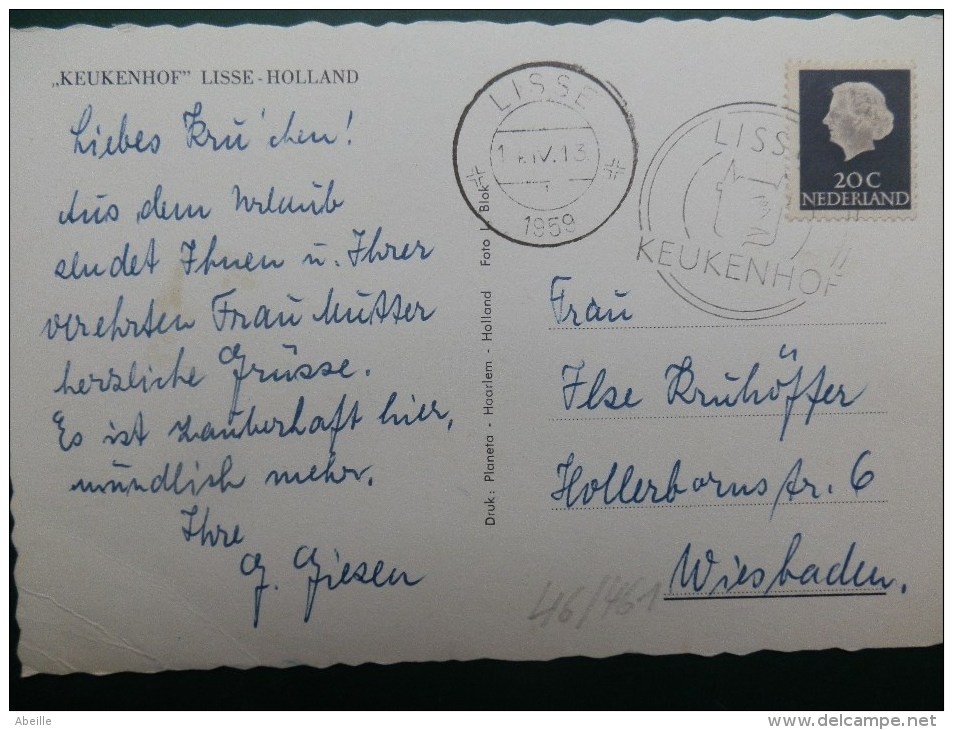 „KEUKENHOF” LISSE-HOLLAND
Liebes Kru'chen!
Aus dem Urlaub
sendet Ihnen u. Ihrer
verehrten Frau Mutter
herzliche Grüsse.
Es ist zauberhaft hier,
mündlich mehr.
Ihre
G. Giesen
Druk: Planeta - Haarlem - Holland Foto L. Blok
LISSE
1959
LISSE
KEUKENHOF
20 C
NEDERLAND
Frau
Ilse Kruhöffer
Hollerbornstr. 6
Wiesbaden.
46/461
Abeille
www.delcampe.net